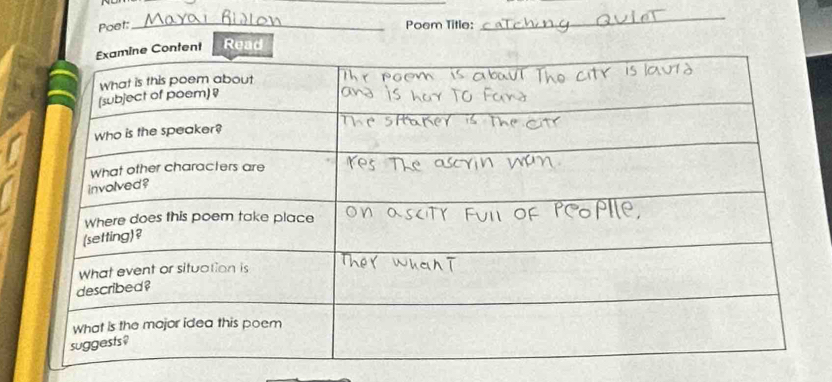 Poet: Marai Bislon Poem Title: catching Quiet
Examine Content Read
What is this poem about
(subject of poem)?
The poem is about The city is laurd
and is har To Fand
Who is the speaker?
The speaker is The city
What other characters are
involved?
Yes The ascrin wan.
Where does this poem take place
(setting)?
on ascity Full of Peoplle.
What event or situation is
described?
Ther whant
What is the major idea this poem
suggests?